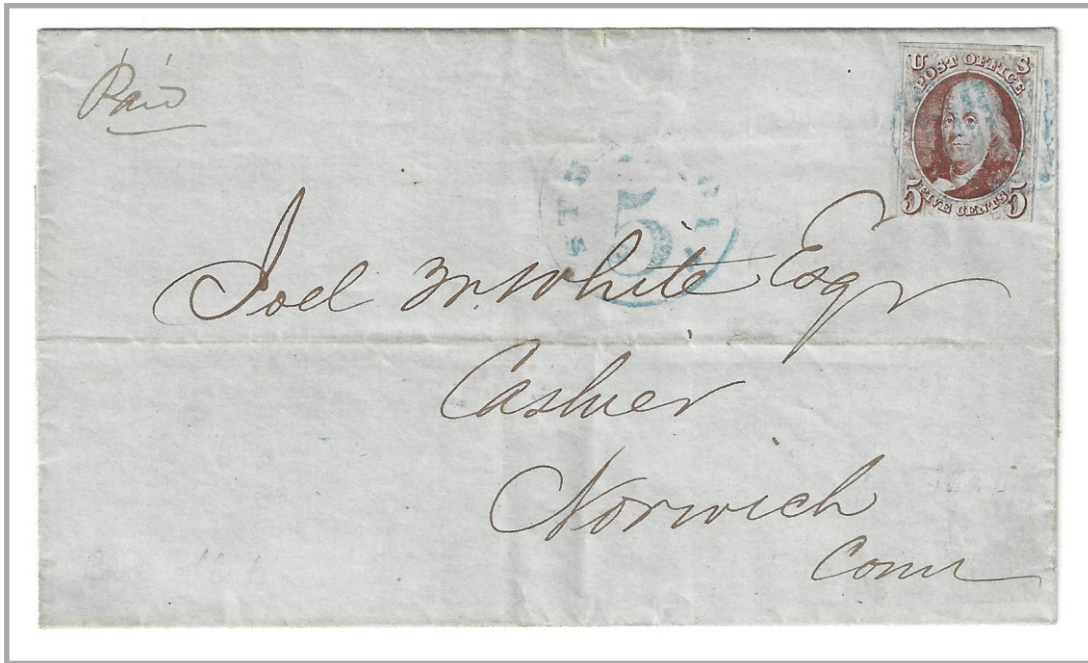 Paid
U S
POST OFFICE
5 FIVE CENTS 5
STEAM
5
Joel M. White Esqr
Cashier
Norwich
Conn